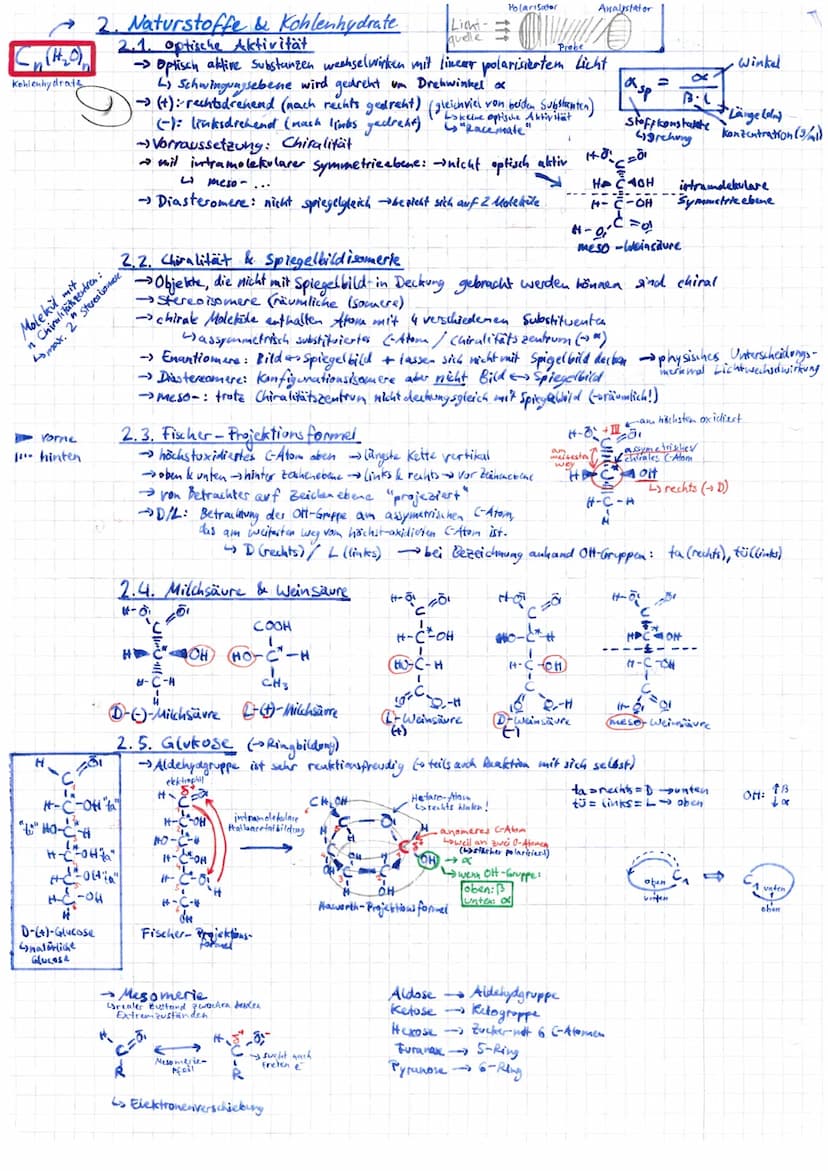 2. Naturstoffe & Kohlenhydrate
Polarisator Analysator
Licht-
quelle
Probe
Cn(H2O)n
Kohlenhydrate
2.1. Optische Aktivität
→ Optisch aktive Substanzen wechselwirken mit linear polarisiertem Licht
↳ Schwingungsebene wird gedreht um Drehwinkel α
→ (+): rechtsdrehend (nach rechts gedreht) (gleichviel von beiden Substanten)
↳ keine optische Aktivität
(-): linksdrehend (nach links gedreht) ↳ "Racemate"
→ Vorraussetzung: Chiralität
→ mit intramolekularer Symmetrieebene: → nicht optisch aktiv
↳ meso-...
→ Diasteromere: nicht spiegelgleich → bezieht sich auf 2 Moleküle
αsp = α / β·l
Winkel
Länge (dm)
Konzentration (g/ml)
Stoffkonstante
↳ Drehung
intramolekulare
Symmetrieebene
meso-Weinsäure
2.2. Chiralität & Spiegelbildisomerie
Molekül mit
n Chiralitätszentren:
↳ max. 2ⁿ Stereoisomere
→ Objekte, die nicht mit Spiegelbild in Deckung gebracht werden können sind chiral
→ Stereoisomere (räumliche Isomere)
→ chirale Moleküle enthalten Atom mit 4 verschiedenen Substituenten
↳ assymmetrisch substituiertes C-Atom / Chiralitätszentrum (→ *)
→ Enantiomere: Bild ↔ Spiegelbild + lassen sich nicht mit Spigelbild decken → physisches Unterscheidungs-
merkmal Lichtwechselwirkung
→ Diastereomere: Konfigurationsisomere aber nicht Bild ↔ Spiegelbild
→ meso-: trotz Chiralitätszentrum nicht deckungsgleich mit Spiegelbild (→ räumlich!)
vorne
hinten
2.3. Fischer-Projektionsformel
→ höchstoxidiertes C-Atom oben → längste Kette vertikal
→ oben & unten → hinter Zeichenebene → links & rechts → vor Zeichenebene
→ von Betrachter auf Zeichenebene "projeziert"
→ D/L: Betrachtung der OH-Gruppe am assymetrischen C-Atom,
das am weitesten weg vom höchst-oxidierten C-Atom ist.
↳ D (rechts) / L (links) → bei Bezeichnung anhand OH-Gruppen: ta (rechts), tü (links)
am höchsten oxidiert
+III
am
weitesten
weg
assymetrisches/
chirales C-Atom
OH
↳ rechts (→ D)
2.4. Milchsäure & Weinsäure
COOH
HO-C*-H
CH3
D-(-)-Milchsäure L-(+)-Milchsäure
L-Weinsäure
(+)
D-Weinsäure
(-)
meso-Weinsäure
2.5. Glukose (→ Ringbildung)
→ Aldehydgruppe ist sehr reaktionsfreudig (→ teils auch Reaktion mit sich selbst)
H-C-OH "ta"
"tü" HO-C-H
H-C-OH "ta"
H-C-OH "ta"
H-C-OH
H
D-(+)-Glucose
↳ natürliche
Glucose
elektrophil
δ+
Fischer-Projektions-
formel
intramolekulare
Halbacetalbildung
CH2OH
Hetero-Atom
↳ rechts hinten!
anomeres C-Atom
↳ weil an zwei O-Atomen
(↳ stärker polarisiert)
OH → α
↳ wenn OH-Gruppe:
oben: β
unten: α
Haworth-Projektionsformel
ta = rechts = D → unten
tü = links = L → oben
OH: ↑β
↓α
oben
unten
C1
C1
unten
oben
→ Mesomerie
↳ realer Zustand zwischen beiden
Extremzuständen
Mesomerie-
pfeil
→ sucht nach
freien e⁻
↳ Elektronenverschiebung
Aldose → Aldehydgruppe
Ketose → Ketogruppe
Hexose → Zucker mit 6 C-Atomen
Furanose → 5-Ring
Pyranose → 6-Ring